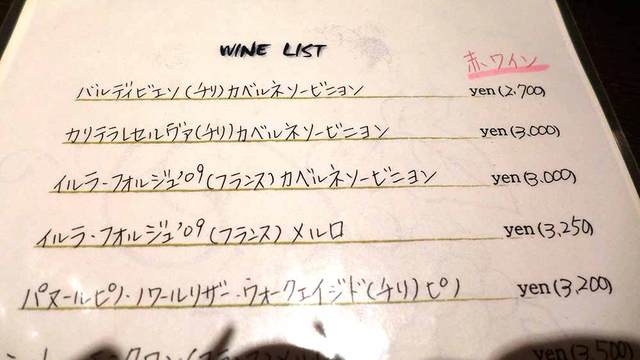 WINE LIST
赤ワイン
バルディビエソ(チリ)カベルネソービニョン yen(2,700)
カリテラレセルヴァ(チリ)カベルネソービニヨン yen(3,000)
イルラ・フォルジュ'09(フランス)カベルネソービニヨン yen(3,000)
イルラ・フォルジュ'09(フランス)メルロ yen(3,250)
パヌールピノ・ノワールリザー・ウォークェイジド(チリ)ピノ yen(3,200)
yen(3,500)